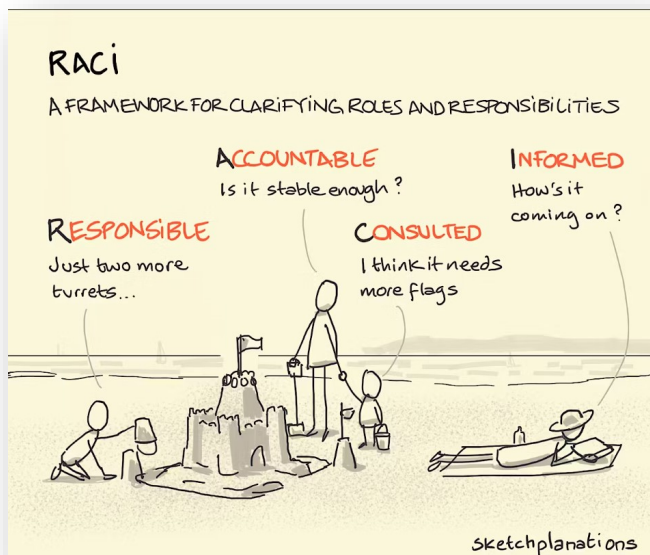 RACI
A FRAMEWORK FOR CLARIFYING ROLES AND RESPONSIBILITIES
RESPONSIBLE
Just two more
turrets...
ACCOUNTABLE
Is it stable enough?
CONSULTED
I think it needs
more flags
INFORMED
How's it
coming on?
sketchplanations